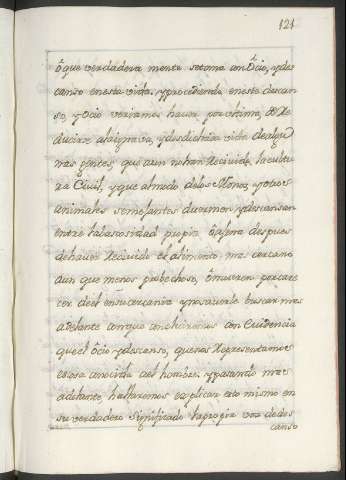 121
õ que verdadera mente se toma con Ócio, y des
canso en esta vida. y procediendo en este descan
so, y ocio veriamos hacer por ultimo, ô Re
ducirse a la ignava, y desdichada vida de algu
nas gentes, que aun no han Recivido la cultu
ra Civil, y que al modo de los Monos, y otros
animales semejantes duermen, y descansan
entre la basosidad propia, ô afuera despues
de haver Recivido el alimento mas cercano
aun que menos probechoso, ô mueren por care
cer de el en su cercania y no saverle buscar mas
adelante conque concluiremos con Evidencia
que el ócio y descanso, que nos Representamos
es esa el hombre. y pasando mas
adelante, hallaremos explicar esto mismo en
su verdadero significado la propia voz de des
canso